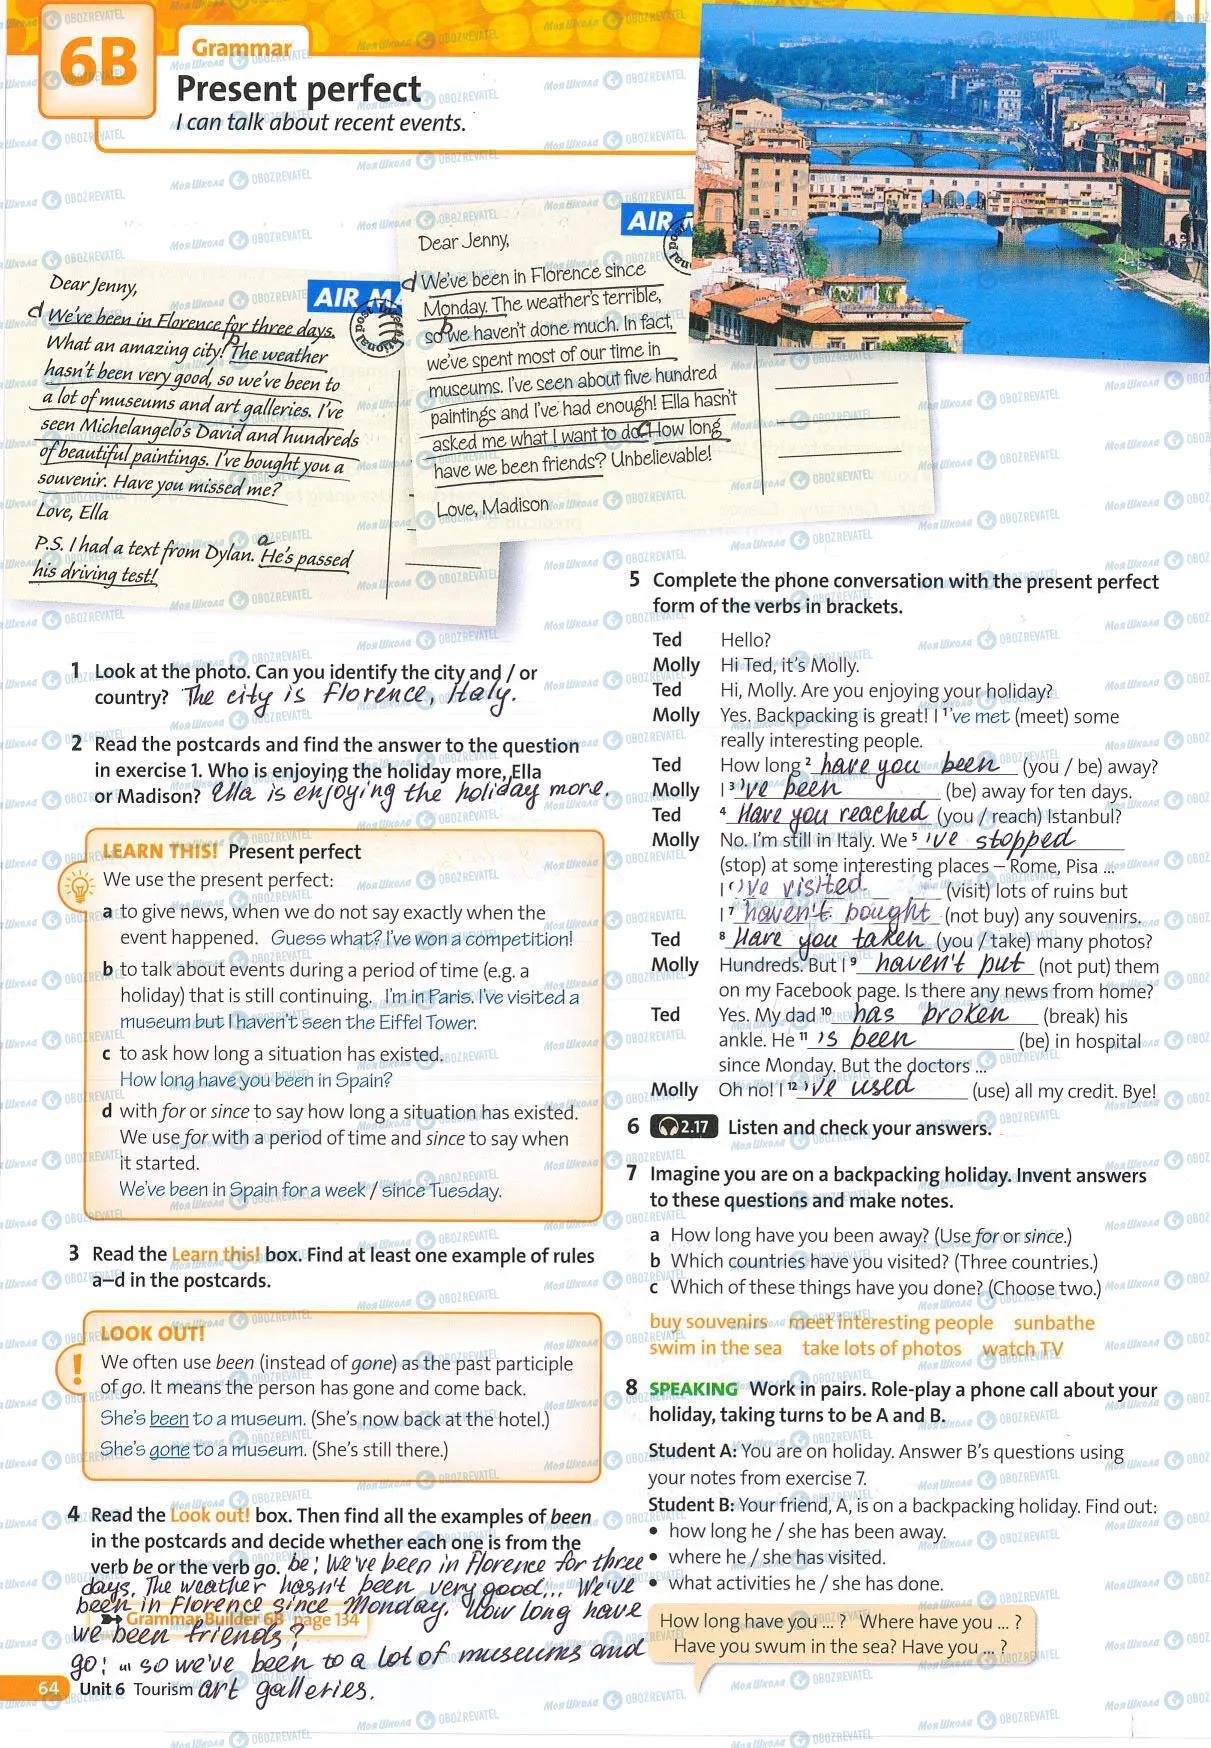 6B
Grammar
Present perfect
I can talk about recent events.
Dear Jenny,
We've been in Florence for three days.
What an amazing city! The weather
hasn't been very good, so we've been to
a lot of museums and art galleries. I've
seen Michelangelo's David and hundreds
of beautiful paintings. I've bought you a
souvenir. Have you missed me?
Love, Ella
P.S. I had a text from Dylan. He's passed
his driving test!
d
b
a
AIR MA
Dear Jenny,
We've been in Florence since
Monday. The weather's terrible,
so we haven't done much. In fact,
we've spent most of our time in
museums. I've seen about five hundred
paintings and I've had enough! Ella hasn't
asked me what I want to do. How long
have we been friends? Unbelievable!
Love, Madison
d
b
c
AIR M
1 Look at the photo. Can you identify the city and / or
country? The city is Florence, Italy.
2 Read the postcards and find the answer to the question
in exercise 1. Who is enjoying the holiday more, Ella
or Madison? Ella is enjoying the holiday more.
LEARN THIS! Present perfect
We use the present perfect:
a to give news, when we do not say exactly when the
event happened. Guess what? I've won a competition!
b to talk about events during a period of time (e.g. a
holiday) that is still continuing. I'm in Paris. I've visited a
museum but I haven't seen the Eiffel Tower.
c to ask how long a situation has existed.
How long have you been in Spain?
d with for or since to say how long a situation has existed.
We use for with a period of time and since to say when
it started.
We've been in Spain for a week / since Tuesday.
3 Read the Learn this! box. Find at least one example of rules
a–d in the postcards.
LOOK OUT!
!
We often use been (instead of gone) as the past participle
of go. It means the person has gone and come back.
She's been to a museum. (She's now back at the hotel.)
She's gone to a museum. (She's still there.)
4 Read the Look out! box. Then find all the examples of been
in the postcards and decide whether each one is from the
verb be or the verb go. be: We've been in Florence for three
days. The weather hasn't been very good... We've
been in Florence since Monday. How long have
Grammar Builder 6B page 134
we been friends?
go: ... so we've been to a lot of museums and
art galleries.
64 Unit 6 Tourism
5 Complete the phone conversation with the present perfect
form of the verbs in brackets.
Ted Hello?
Molly Hi Ted, it's Molly.
Ted Hi, Molly. Are you enjoying your holiday?
Molly Yes. Backpacking is great! I 1 've met (meet) some
really interesting people.
Ted How long 2 have you been (you / be) away?
Molly I 3 've been (be) away for ten days.
Ted 4 Have you reached (you / reach) Istanbul?
Molly No. I'm still in Italy. We 5 've stopped
(stop) at some interesting places – Rome, Pisa ...
I 6 've visited (visit) lots of ruins but
I 7 haven't bought (not buy) any souvenirs.
Ted 8 Have you taken (you / take) many photos?
Molly Hundreds. But I 9 haven't put (not put) them
on my Facebook page. Is there any news from home?
Ted Yes. My dad 10 has broken (break) his
ankle. He 11 's been (be) in hospital
since Monday. But the doctors ...
Molly Oh no! I 12 've used (use) all my credit. Bye!
6 2.17 Listen and check your answers.
7 Imagine you are on a backpacking holiday. Invent answers
to these questions and make notes.
a How long have you been away? (Use for or since.)
b Which countries have you visited? (Three countries.)
c Which of these things have you done? (Choose two.)
buy souvenirs meet interesting people sunbathe
swim in the sea take lots of photos watch TV
8 SPEAKING Work in pairs. Role-play a phone call about your
holiday, taking turns to be A and B.
Student A: You are on holiday. Answer B's questions using
your notes from exercise 7.
Student B: Your friend, A, is on a backpacking holiday. Find out:
• how long he / she has been away.
• where he / she has visited.
• what activities he / she has done.
How long have you ... ? Where have you ... ?
Have you swum in the sea? Have you ... ?
Моя Школа OBOZREVATEL